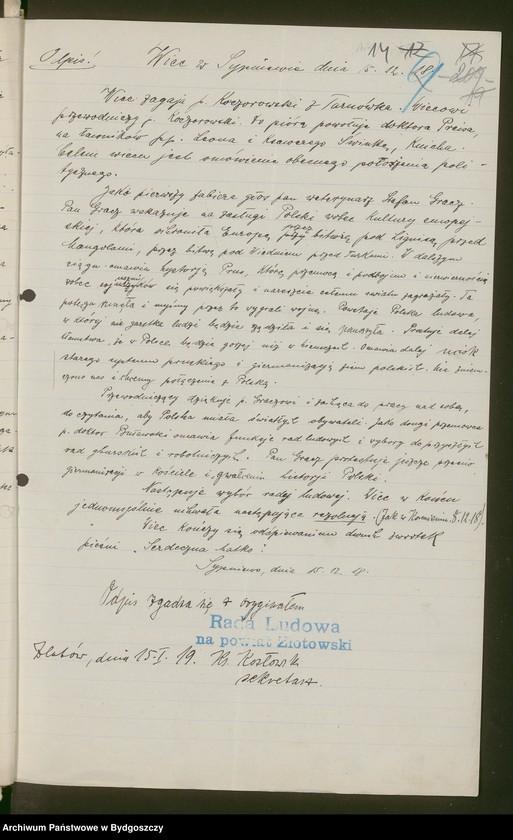 Odpis!
14 12
Wiec w Sypniewie dnia 5. 12. 18.
Wiec zagaja p. Koczorowski z Tarnówka. Wiecowi
przewodniczy p. Koczorowski. Do pióra powołuje doktora Prewa,
na ławników p.p. Leona i Ksawerego Kucha.
Celem wiecu jest omówienie obecnego położenia poli-
tycznego.
Jako pierwszy zabiera głos pan weterynarz Stefan Gracz.
Pan Gracz wskazuje na zasługi Polski wobec kultury europej-
skiej, która ochroniła Europę przez bitwę pod Lignicą, przed
Mongołami, przez bitwę pod Wiedniem przed Turkami. W dalszym
ciągu omawia historję Prus, które przemocą i podbojem i
wobec się powiększyły i nareszcie całemu światu zagroziły. Ta
potęga runęła i myśmy przez to wygrali wojnę. Powstaje Polska ludowa,
w której nie garstka ludzi będzie rządziła i się panoszyła.
kłamstwa, że w Polsce będzie gorzej niż w Niemczech. Omawia dalej ucisk
starego systemu pruskiego i germanizację ziem polskich. Nie zniem-
czono nas i chcemy połączenia z Polską.
Przewodniczący dziękuje p. Graczowi i zachęca do pracy nad sobą,
do czytania, aby Polska miała światłych obywateli. Jako drugi przemawia
p. doktor omawia funkcje rad ludowych i wybory do przyszłych
rad chłopskich i robotniczych. Pan Gracz protestuje jeszcze przeciw
germanizacji w kościele i gwałceniu historji Polski.
Następuje wybór rady ludowej. Wiec w końcu
jednomyślnie uchwala następującą rezolucję. (Jak w Kamieniu 8. 12. 18).
Wiec kończy się odśpiewaniem dwuch zwrotek
pieśni „Serdeczna Matko".
Sypniewo, dnia 15. 12. 18.
Odpis zgadza się z oryginałem
Rada Ludowa
na powiat Złotowski
Złotów, dnia 15. I. 19. Kozłowski
sekretarz.
Archiwum Państwowe w Bydgoszczy